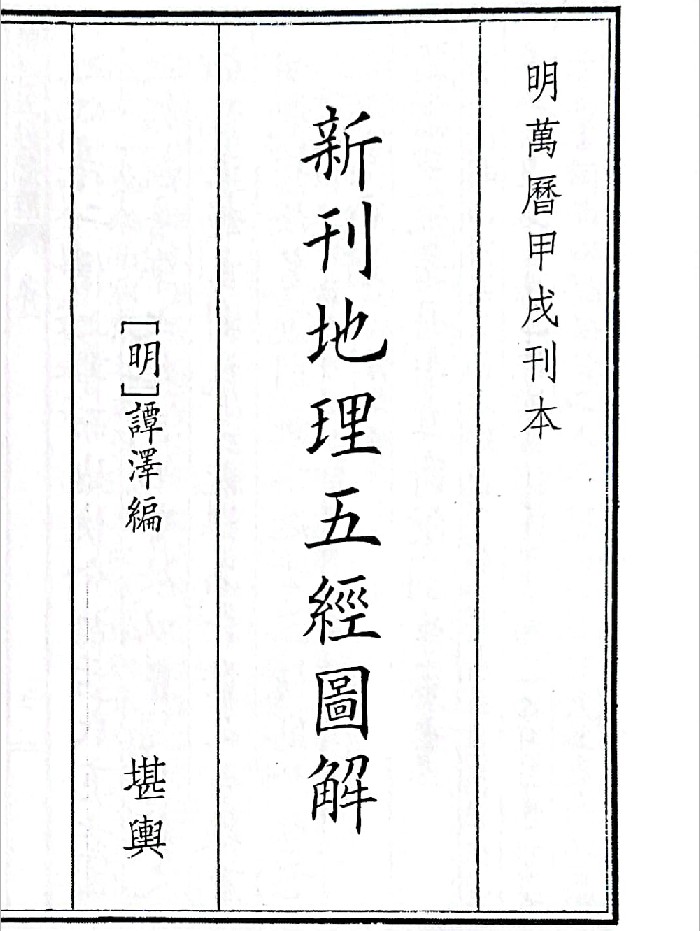 明萬曆甲戌刊本
新刊地理五經圖解
［明］譚澤編
堪輿